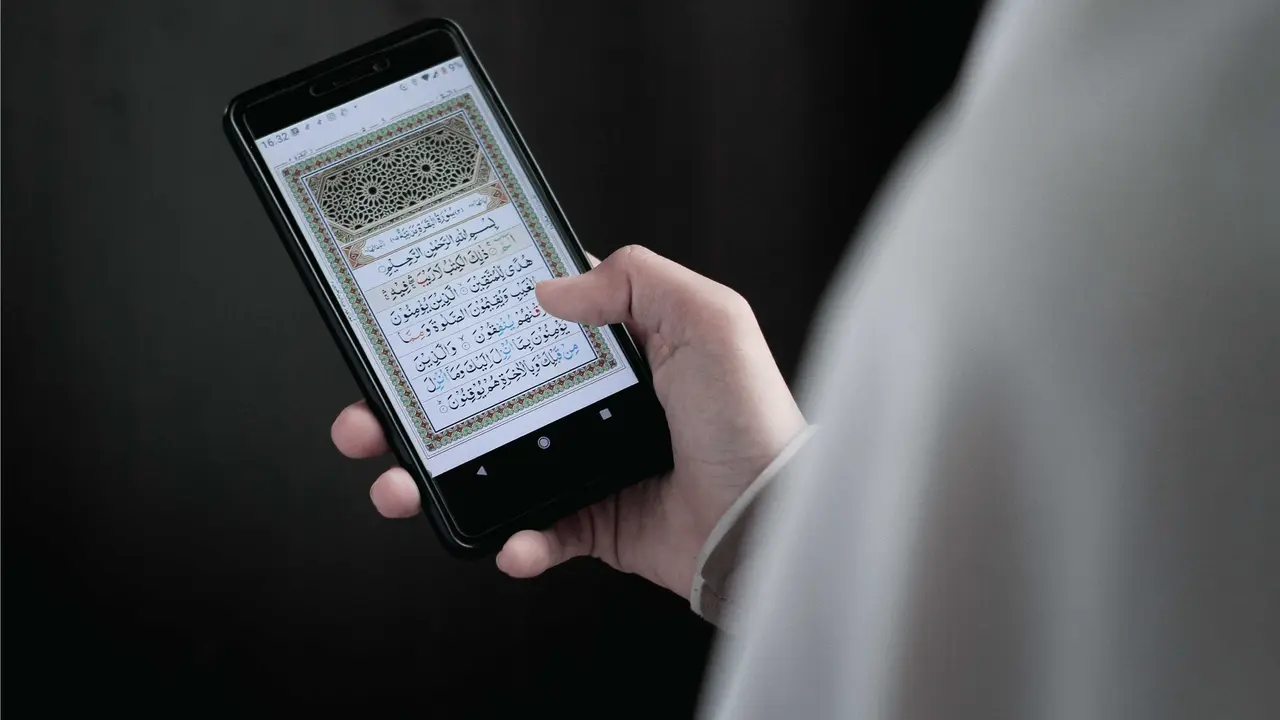 16:32
9%
سورة البقرة مدنية
بسم الله الرحمن الرحيم
الم ذلك الكتب لا ريب فيه
هدى للمتقين الذين يؤمنون
الغيب ويقيمون الصلوة ومما
قنهم ينفقون والذين
يؤمنون بما أنزل إليك وما أنزل
من قبلك وبالآخرة هم يوقنون